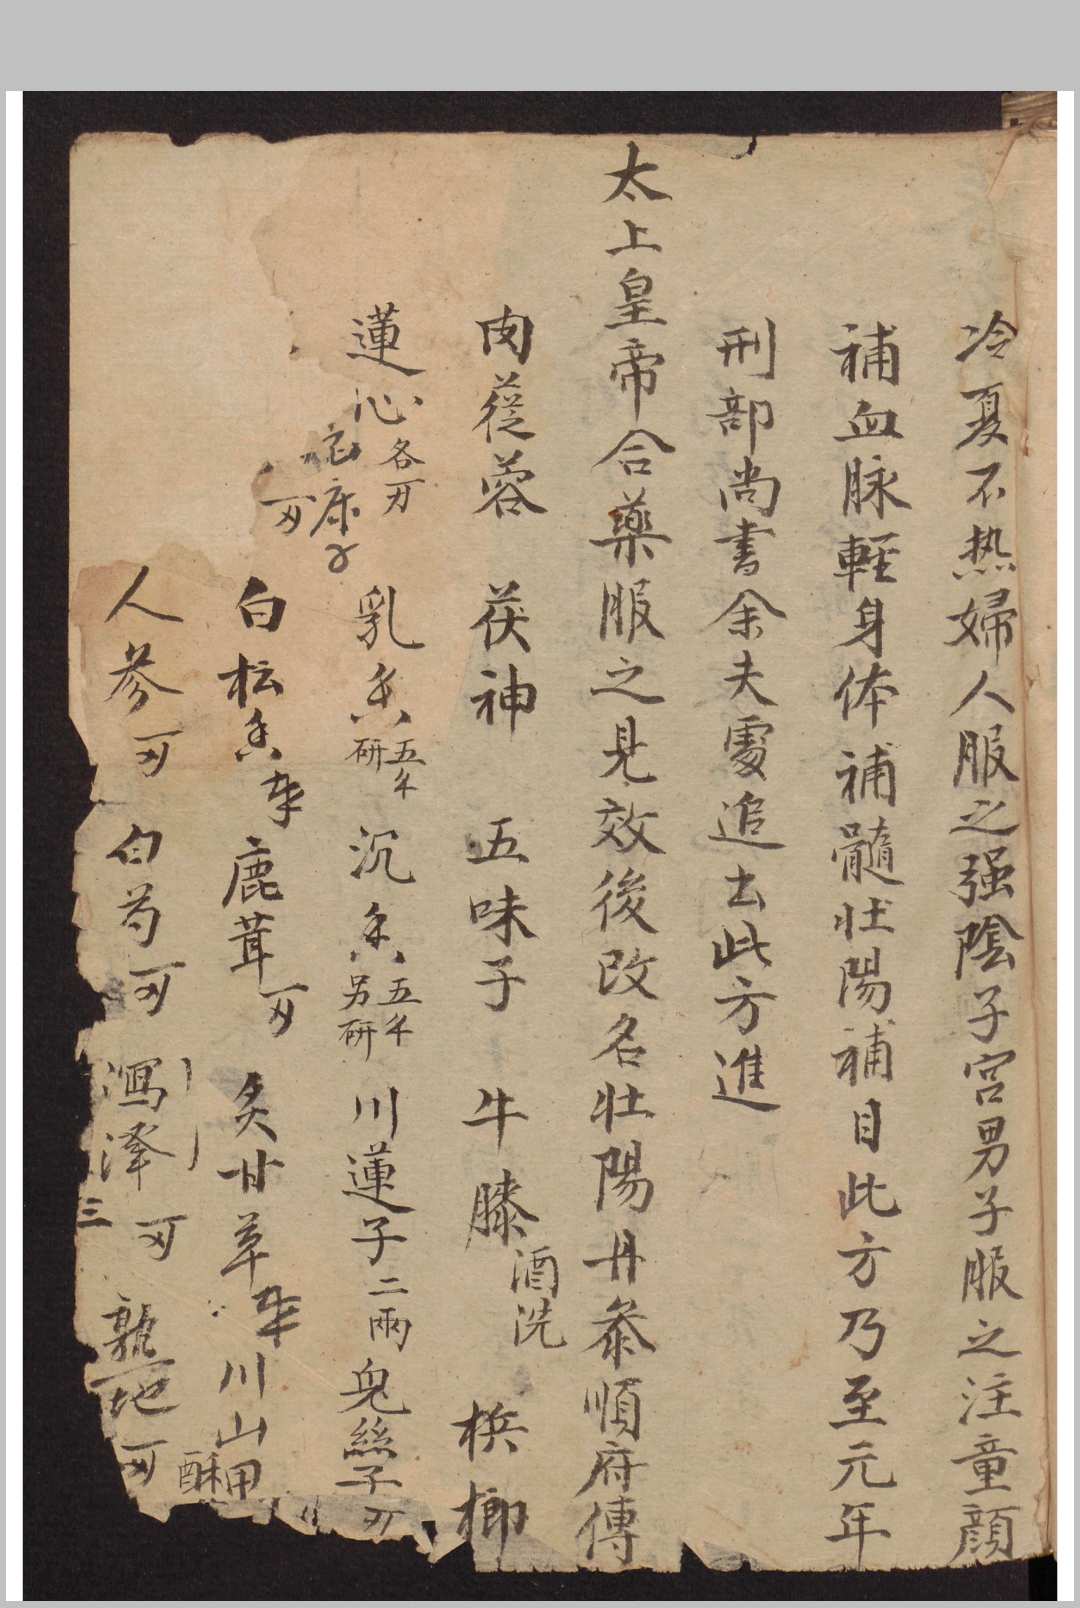 冷夏不热婦人服之强陰子宫男子服之注童顔
補血脉軽身体補髓壮陽補目此方乃至元年
刑部尚書余夫處追去此方進
太上皇帝合藥服之見效後改名壮陽丹叅順府傳
肉蓯蓉 茯神 五味子 牛膝 酒洗 梹榔
蓮心 各 乳香 五 研 沉香 五 另研 川蓮子 二兩 兔絲子
白松香 鹿茸 炙甘草 川山甲 酥
人参 白芍 澤 三 地